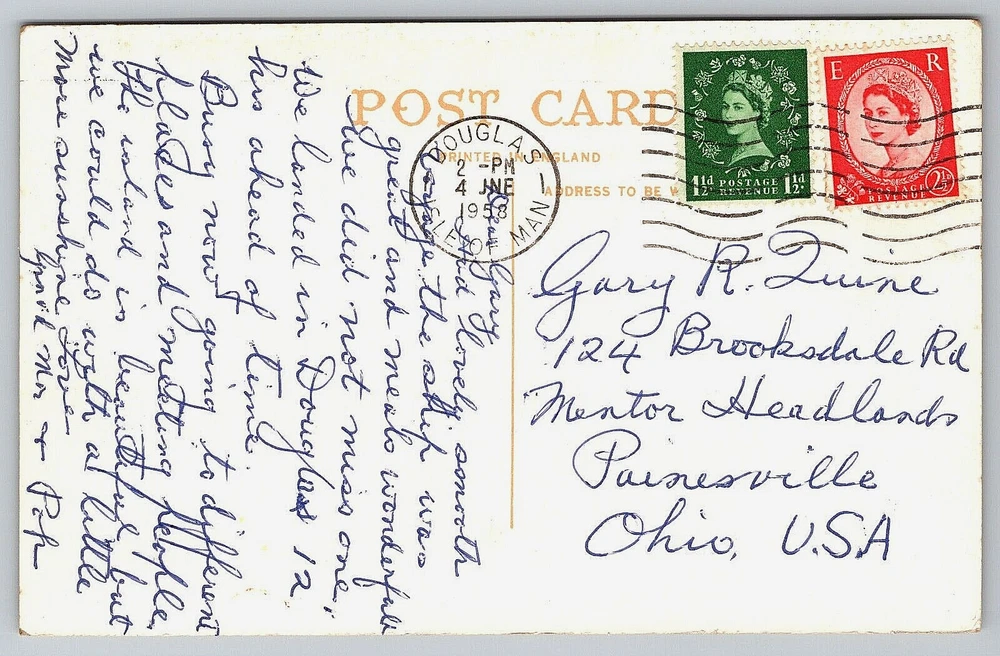 POST CARD
PRINTED IN ENGLAND
ADDRESS TO BE W
DOUGLAS
2 - PM
4 JNE
1958
ISLE OF MAN
1½d POSTAGE 1½d
REVENUE
E R
POSTAGE 2½d
REVENUE
Dear Gary
Had lovely smooth
voyage the ship was
great and meals wonderful
we did not miss one,
We landed in Douglas 12
hrs ahead of time.
Busy now going to different
places and meeting people,
the island is beautiful, but
we could do with a little
more sunshine Love
Grand Ma + Pop
Gary R. Quine
124 Brooksdale Rd
Mentor Headlands
Painesville
Ohio, U.S.A